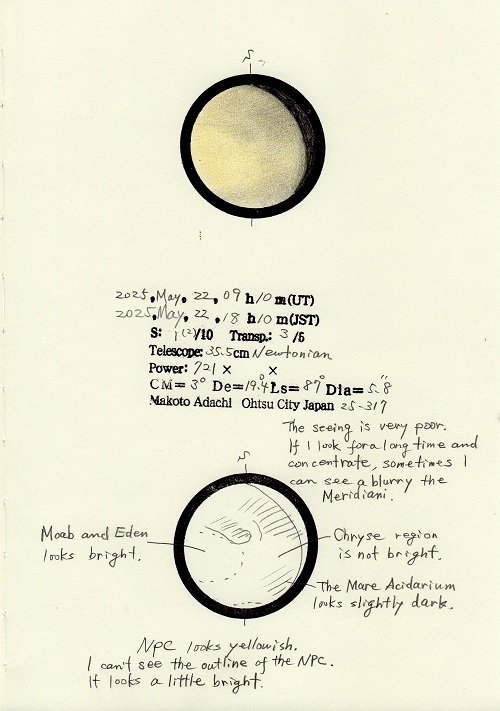 S
2025, May, 22, 09 h 10 m(UT)
2025, May, 22, 18 h 10 m(JST)
S: 1(2)/10 Transp.: 3 /5
Telescope: 35.5cm Newtonian
Power: 721 × ×
CM= 3° De=19.4° Ls= 87° Dia= 5.8"
Makoto Adachi Ohtsu City Japan 25-317
The seeing is very poor.
If I look for a long time and
concentrate, sometimes I
can see a blurry the
Meridiani.
S
Moab and Eden
looks bright.
Chryse region
is not bright.
The Mare Acidarium
looks slightly dark.
NPC looks yellowish.
I can't see the outline of the NPC.
It looks a little bright.